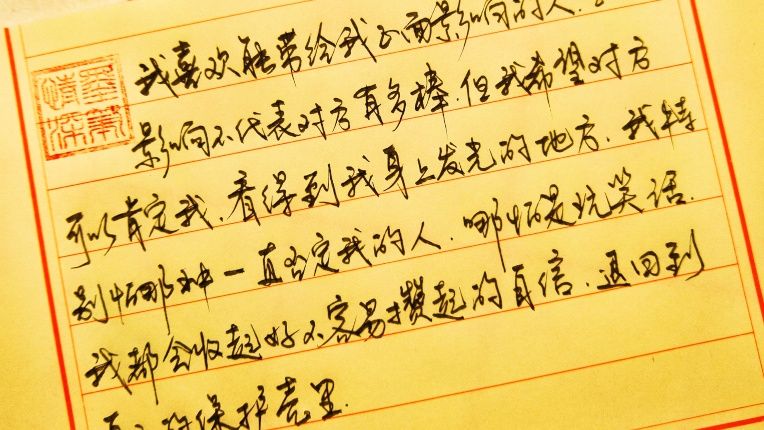 我喜欢能带给我正面影响的人.
影响不代表对方有多棒.但我希望对方
可以肯定我.看得到我身上发光的地方.我特
别怕那种一直否定我的人.哪怕是玩笑话.
我都会收起好不容易攒起的自信.退回到
自己的保护壳里.